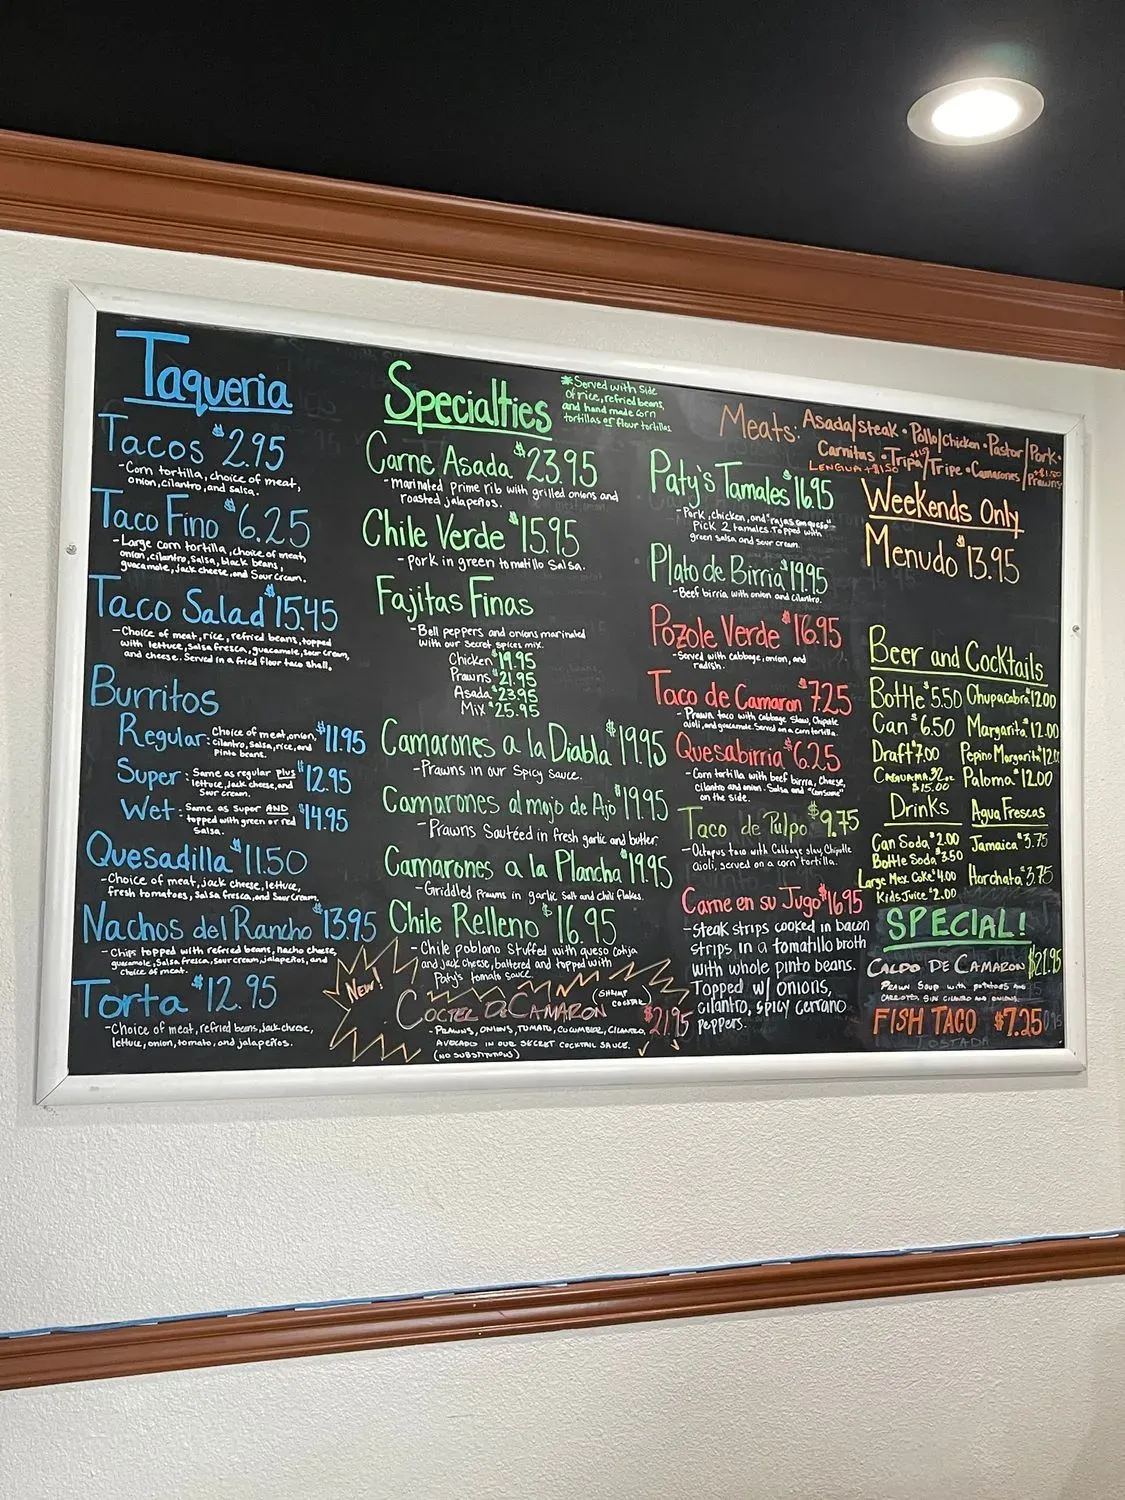 Taqueria
Tacos $2.95
-Corn tortilla, choice of meat,
onion, cilantro, and salsa.
Taco Fino $6.25
-Large corn tortilla, choice of meat,
onion, cilantro, salsa, black beans,
guacamole, jack cheese, and sour cream.
Taco Salad $15.45
-Choice of meat, rice, refried beans, topped
with lettuce, salsa fresca, guacamole, sour cream,
and cheese. Served in a fried flour taco shell,
Burritos
Regular: Choice of meat, onion, $11.95
cilantro, salsa, rice, and
pinto beans.
Super: Same as regular plus $12.95
lettuce, jack cheese, and
sour cream.
Wet: Same as super AND $14.95
topped with green or red
salsa.
Quesadilla $11.50
-Choice of meat, jack cheese, lettuce,
fresh tomatoes, salsa fresca, and sour cream.
Nachos del Rancho $13.95
-Chips topped with refried beans, nacho cheese,
guacamole, salsa fresca, sour cream, jalapeños, and
choice of meat.
Torta $12.95
-Choice of meat, refried beans, jack cheese,
lettuce, onion, tomato, and jalapeños.
Specialties
*Served with side
of rice, refried beans,
and hand made corn
tortillas or flour tortillas
Carne Asada $23.95
-marinated prime rib with grilled onions and
roasted jalapeños.
Chile Verde $15.95
-pork in green tomatillo salsa.
Fajitas Finas
-Bell peppers and onions marinated
with our secret spices mix.
Chicken $19.95
Prawns $21.95
Asada $23.95
Mix $25.95
Camarones a la Diabla $19.95
-Prawns in our spicy sauce.
Camarones al mojo de Ajo $19.95
-Prawns sautéed in fresh garlic and butter.
Camarones a la Plancha $19.95
-Griddled Prawns in garlic salt and chili flakes.
Chile Relleno $16.95
-Chile poblano stuffed with queso cotija
and jack cheese, battered and topped with
Paty's tomato sauce.
NEW!
COCTEL DE CAMARON (SHRIMP
COCKTAIL) $21.95
-PRAWNS, ONIONS, TOMATO, CUCUMBER, CILANTRO,
AVOCADO IN OUR SECRET COCKTAIL SAUCE.
(NO SUBSTITUTIONS)
Paty's Tamales $16.95
-Pork, chicken, and "rajas con queso"
Pick 2 tamales. Topped with
green salsa and sour cream.
Plato de Birria $19.95
-Beef birria with onion and cilantro.
Pozole Verde $16.95
-Served with cabbage, onion, and
radish.
Taco de Camaron $7.25
-Prawn taco with cabbage slaw, chipotle
aioli, and guacamole. Served on a corn tortilla.
Quesabirria $6.25
-Corn tortilla with beef birria, cheese,
cilantro and onion. Salsa and "consume"
on the side.
Taco de Pulpo $9.75
-Octopus taco with cabbage slaw, chipotle
aioli, served on a corn tortilla.
Carne en su Jugo $16.95
-steak strips cooked in bacon
strips, in a tomatillo broth
with whole pinto beans.
Topped w/ onions,
cilantro, spicy serrano
peppers.
Meats: Asada/steak • Pollo/Chicken • Pastor/Pork •
Carnitas • Tripa/Tripe • Camarones/Prawns
LENGUA +$1.50
+$1.50
Weekends Only
Menudo $13.95
Beer and Cocktails
Bottle $5.50 Chupacabra $12.00
Can $6.50 Margarita $12.00
Draft $7.00 Pepino Margarita $12.00
CAGUAMA 32oz Paloma $12.00
$15.00
Drinks Agua Frescas
Can Soda $2.00 Jamaica $3.75
Bottle Soda $3.50
Large Mex. Coke $4.00 Horchata $3.75
Kids Juice $2.00
SPECIAL!
CALDO DE CAMARON $21.95
PRAWN SOUP WITH POTATOES AND
CARROTS. SIN CILANTRO AND ONIONS.
FISH TACO $7.25
TOSTADA